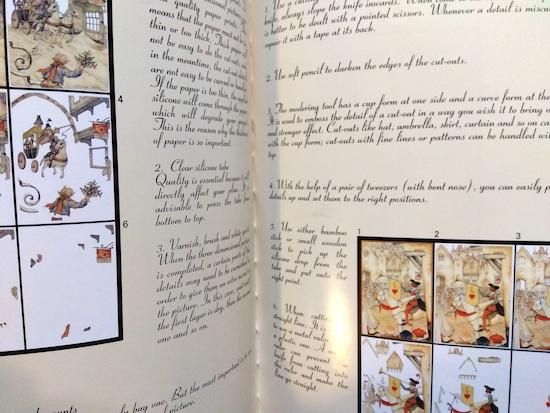 quality paper prints
means that the paper must not be
thin or too thick. Thick paper
not be easy to do the cut-outs
in the meantime, the cut-out details
are not easy to be curved or handled
If the paper is too thin, the
silicone will come through the paper
which will degrade your
This is the reason why the thickness
of paper is so important.
4
2. Clear silicone tube
Quality is essential because it will
directly affect your plan. It is
advisable to press the tube from
bottom to top.
6
3. Varnish, brush and white spirit
When the three dimensional picture
is completed, a certain parts of the
details may need to be varnished in
order to give them an extra
the picture. In this case, wait until
the first layer is dry, then the
one and so on.
buy one. But the most important is to
picture.
Use a cutting
knife, always slope the knife inwards. When come to
is better to be dealt with a pointed scissors. Whenever a detail is miscut
repair it with a tape at its back.
2. Use soft pencil to darken the edges of the cut-outs.
3. The modering tool has a cup form at one side and a curve form at the
It is used to emboss the detail of a cut-out in a way you wish it to bring
and stronger effect. Cut-outs like hat, umbrella, skirt, curtain and so on can
with the cup form; cut-outs with fine lines or patterns can be handled with
top.
4. With the help of a pair of tweezers (with bent nose), you can easily
details up and set them to the right positions.
5. Use either bamboo
stick or small wooden
stick to pick up the
silicone drop from the
tube and put onto the
right point.
1
2
3
6. When cutting
straight line, It is
to use a metal ruler
a plastic one. A
can prevent
knife from cutting into
the ruler and make the
line go straight.